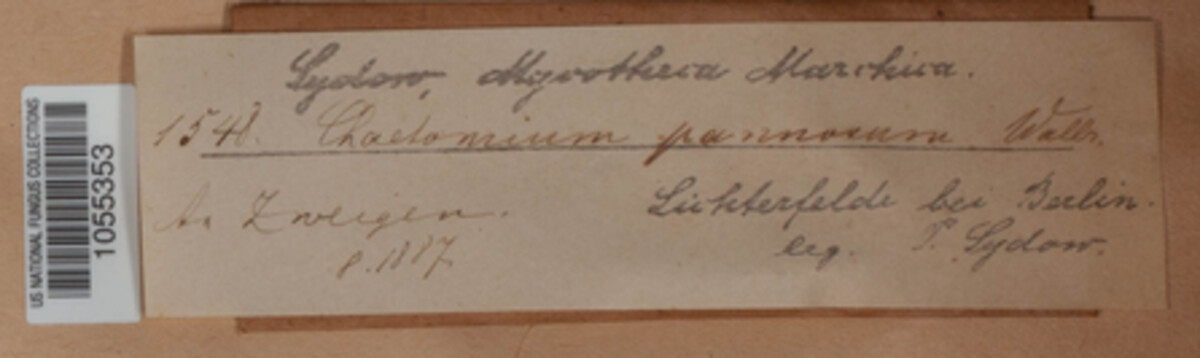 Sydow, Mycotheca Marchica.
1548. Chaetomium pannosum Wallr.
An Zweigen.
8.1887
Lichterfelde bei Berlin.
leg. P. Sydow.
US NATIONAL FUNGUS COLLECTIONS
1055353